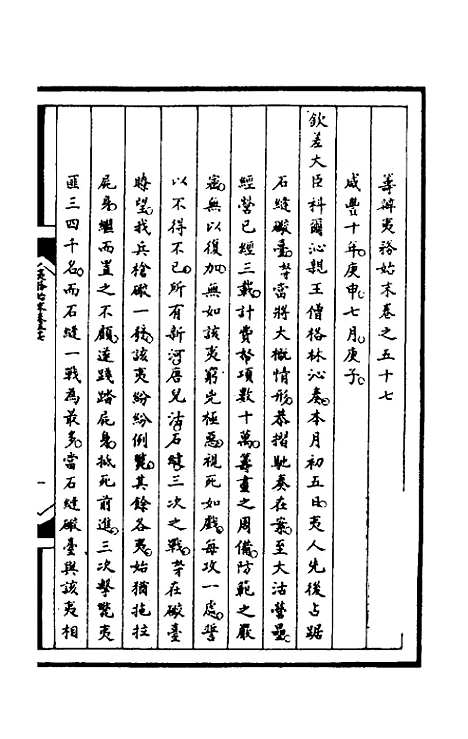 籌辦夷務始末卷之五十七
咸豐十年庚申七月庚子
欽差大臣科爾沁親王僧格林沁奏本月初五日夷人先後占踞
石縫礮臺等當將大概情形恭摺馳奏在案至大沽營壘
經營已經三載計費帑項數十萬籌畫之周備防範之嚴
密無以復加無如該夷窮兇極惡視死如戲每攻一處誓
以不得不已所有新河唐兒沽石縫三次之戰等在礮臺
瞭望我兵槍礮一發該夷紛紛倒斃其餘各夷始猶拖拉
屍身繼而置之不顧遂踐踏屍身抵死前進三次擊斃夷
匪三四千名而石縫一戰為最多當石縫礮臺與該夷相
夷務始末卷五十七
一